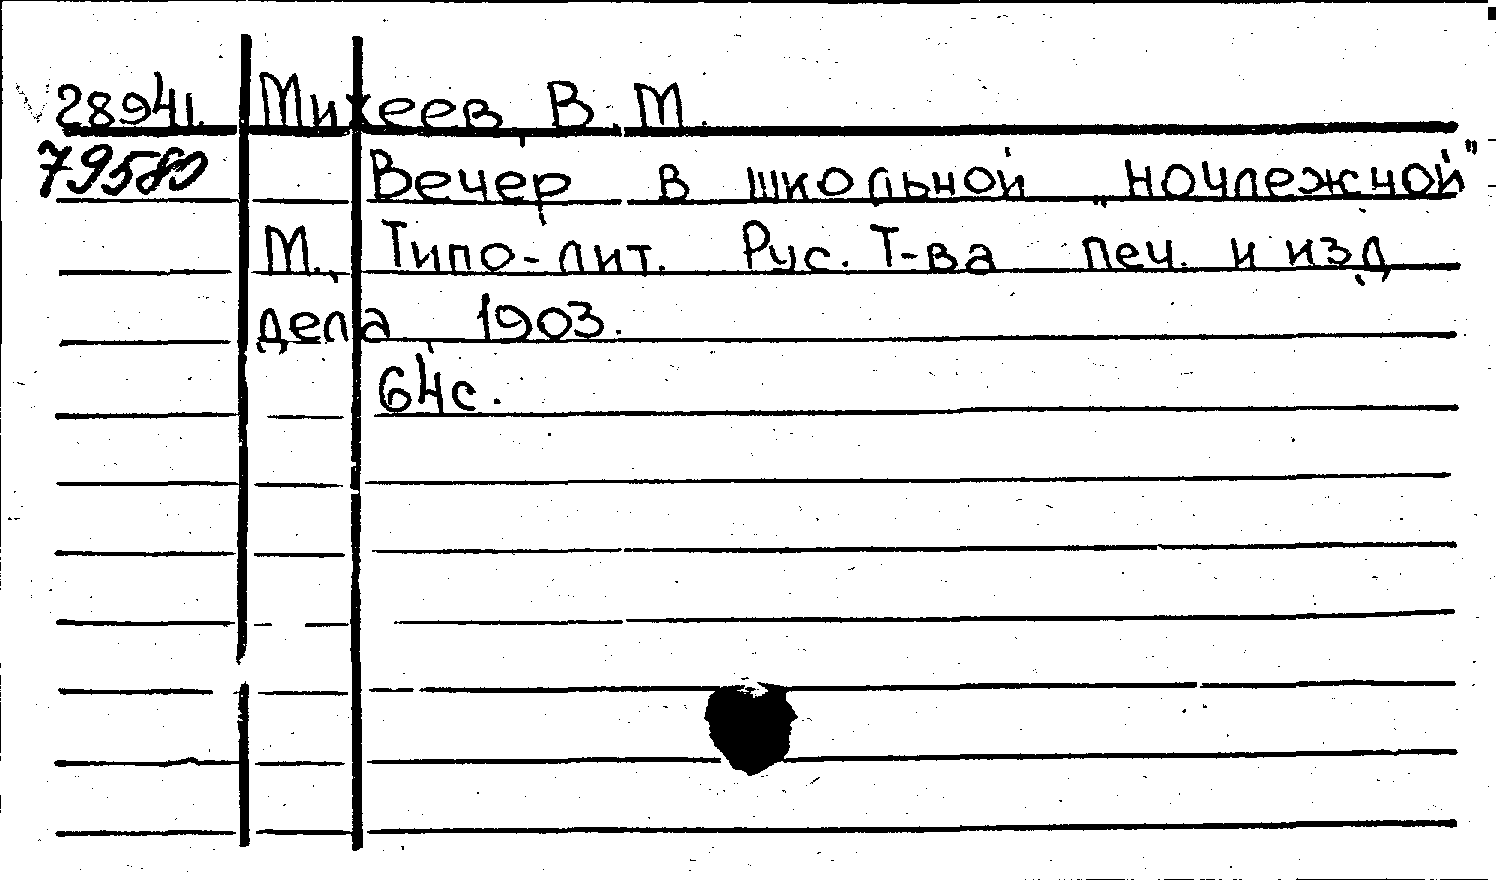 28941. Михеев, В.М.
79580 Вечер в школьной „ночлежной"
М., Типо-лит. Рус. Т-ва печ. и изд.
дела, 1903.
64с.